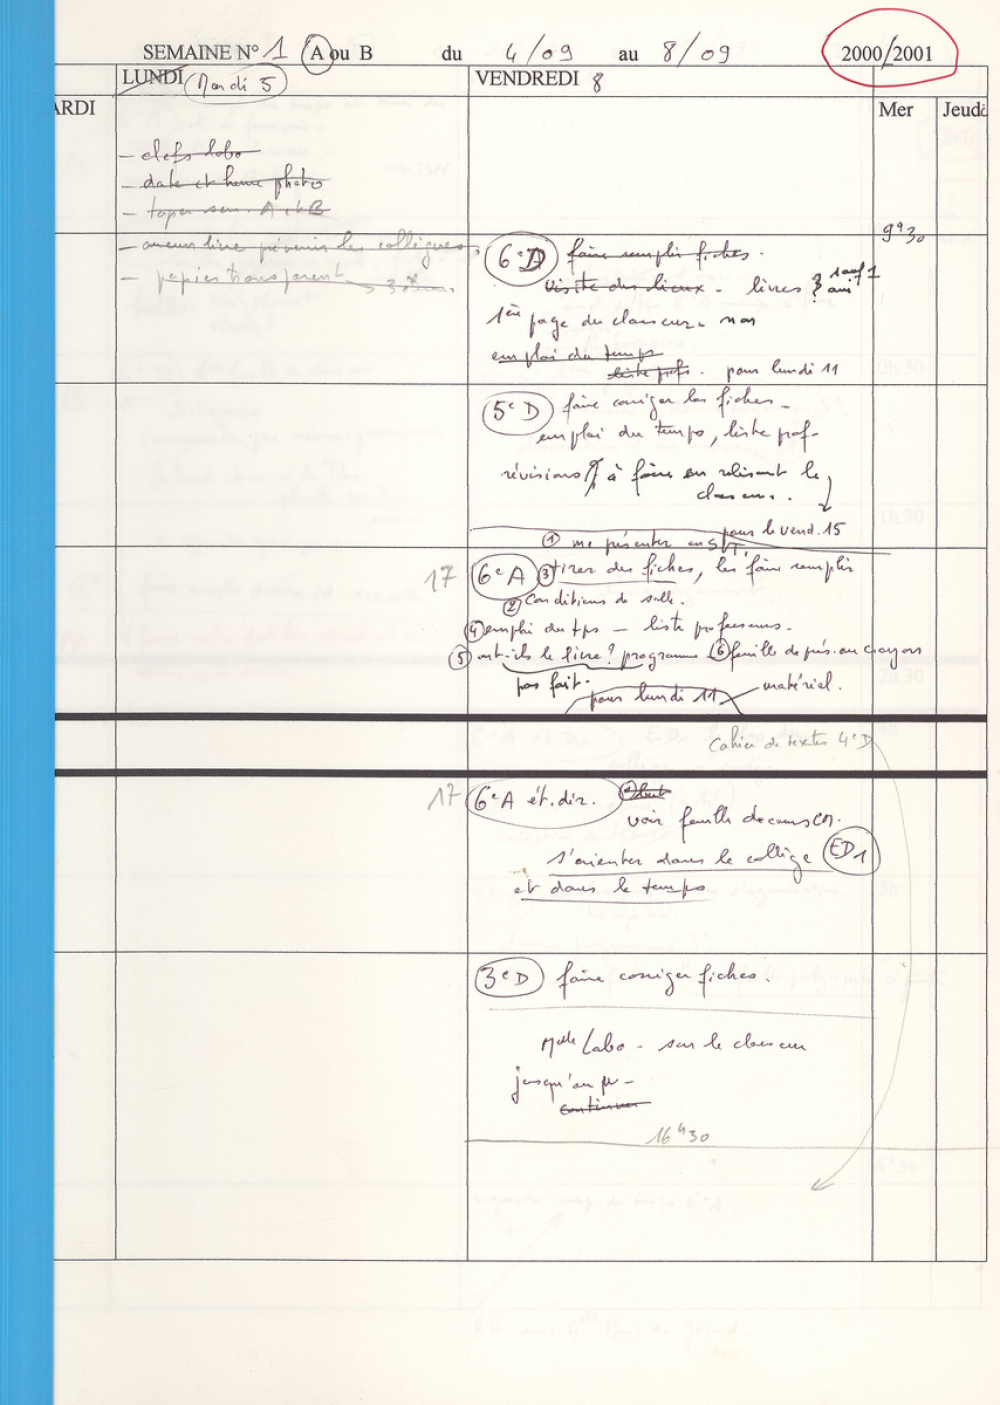 SEMAINE N° 1 A ou B du 4/09 au 8/09 2000/2001
LUNDI Mardi 5
VENDREDI 8
ARDI
Mer
Jeudi
- clefs labo
- date et heure photo
- taper sem. A et B
- aucun livre prévenir les collègues
- papiers transparent
9h30
6eD faire remplir fiches.
visite des lieux - livres ? sauf 1
1ère page du classeur - non
emploi du temps
liste profs. pour lundi 11
5eD faire corriger les fiches -
emploi du temps, liste prof -
révisions à faire en relisant le
classeur.
pour le vend. 15
① me présenter en SVT,
17 6eA ③ tirer des fiches, les faire remplir
② Conditions de salle.
④ emploi du tps - liste professeurs.
⑤ ont-ils le livre? programme ⑥ feuille de prés. au crayon
pas fait. matériel.
pour lundi 11
Cahier de textes 4eD
17 6eA ét. dir.
voir feuille de cours
s'orienter dans le collège ED1
et dans le temps
3eD faire corriger fiches.
Labo - sur le classeur
jusqu'au
continuer
16h30